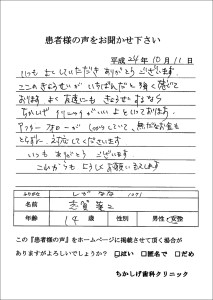 患者様の声をお聞かせ下さい
平成 24年 10月 11日
いつも よくしていただき ありがとう ございます。
ここの きょうせいが いちばんだ と 強く 感じて
おります。よく 友達にも きょうせいするなら
ちかしげ クリニックが いい よと いっております。
アフターフォローが しっかりしていて、急なお色も
とらずに 対応してくださいます
いつも ありがとう ございます。
これからも よろしく お願いいたします
ふりがな しが なな
名前 志賀
年齢 14歳 性別 男性・女性
この『患者様の声』をホームページに掲載させて頂く場合が
ありますがよろしいでしょうか？ □はい □匿名で □だめ
ちかしげ歯科クリニック